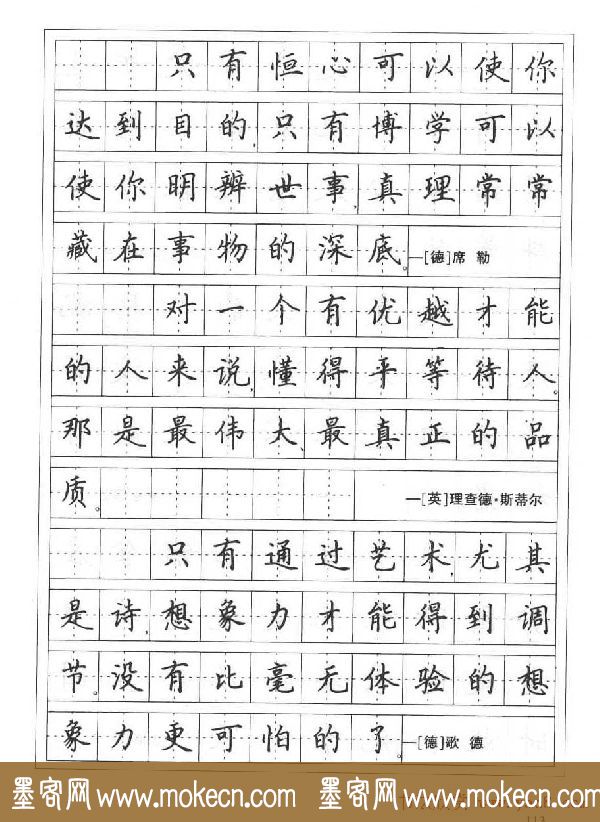 只有恒心可以使你
达到目的只有博学可以
使你明辨世事真理常常
藏在事物的深底。—[德]席 勒
对一个有优越才能
的人来说,懂得平等待人。
那是最伟大、最真正的品
质。—[英]理查德·斯蒂尔
只有通过艺术,尤其
是诗,想象力才能得到调
节。没有比毫无体验的想
象力更可怕的了。—[德]歌 德
墨客网 www.mokecn.com 墨客网 www.mokecn.com
113